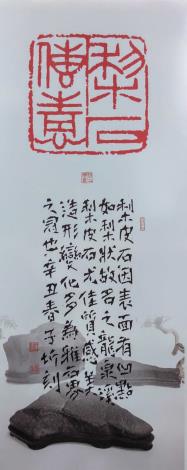 梨石傳意
梨皮石因表面有凹點
如梨狀故名之龍泉溪
梨皮石尤佳質感美
造形變化多為雅石界
之冠也辛丑春子竹刻